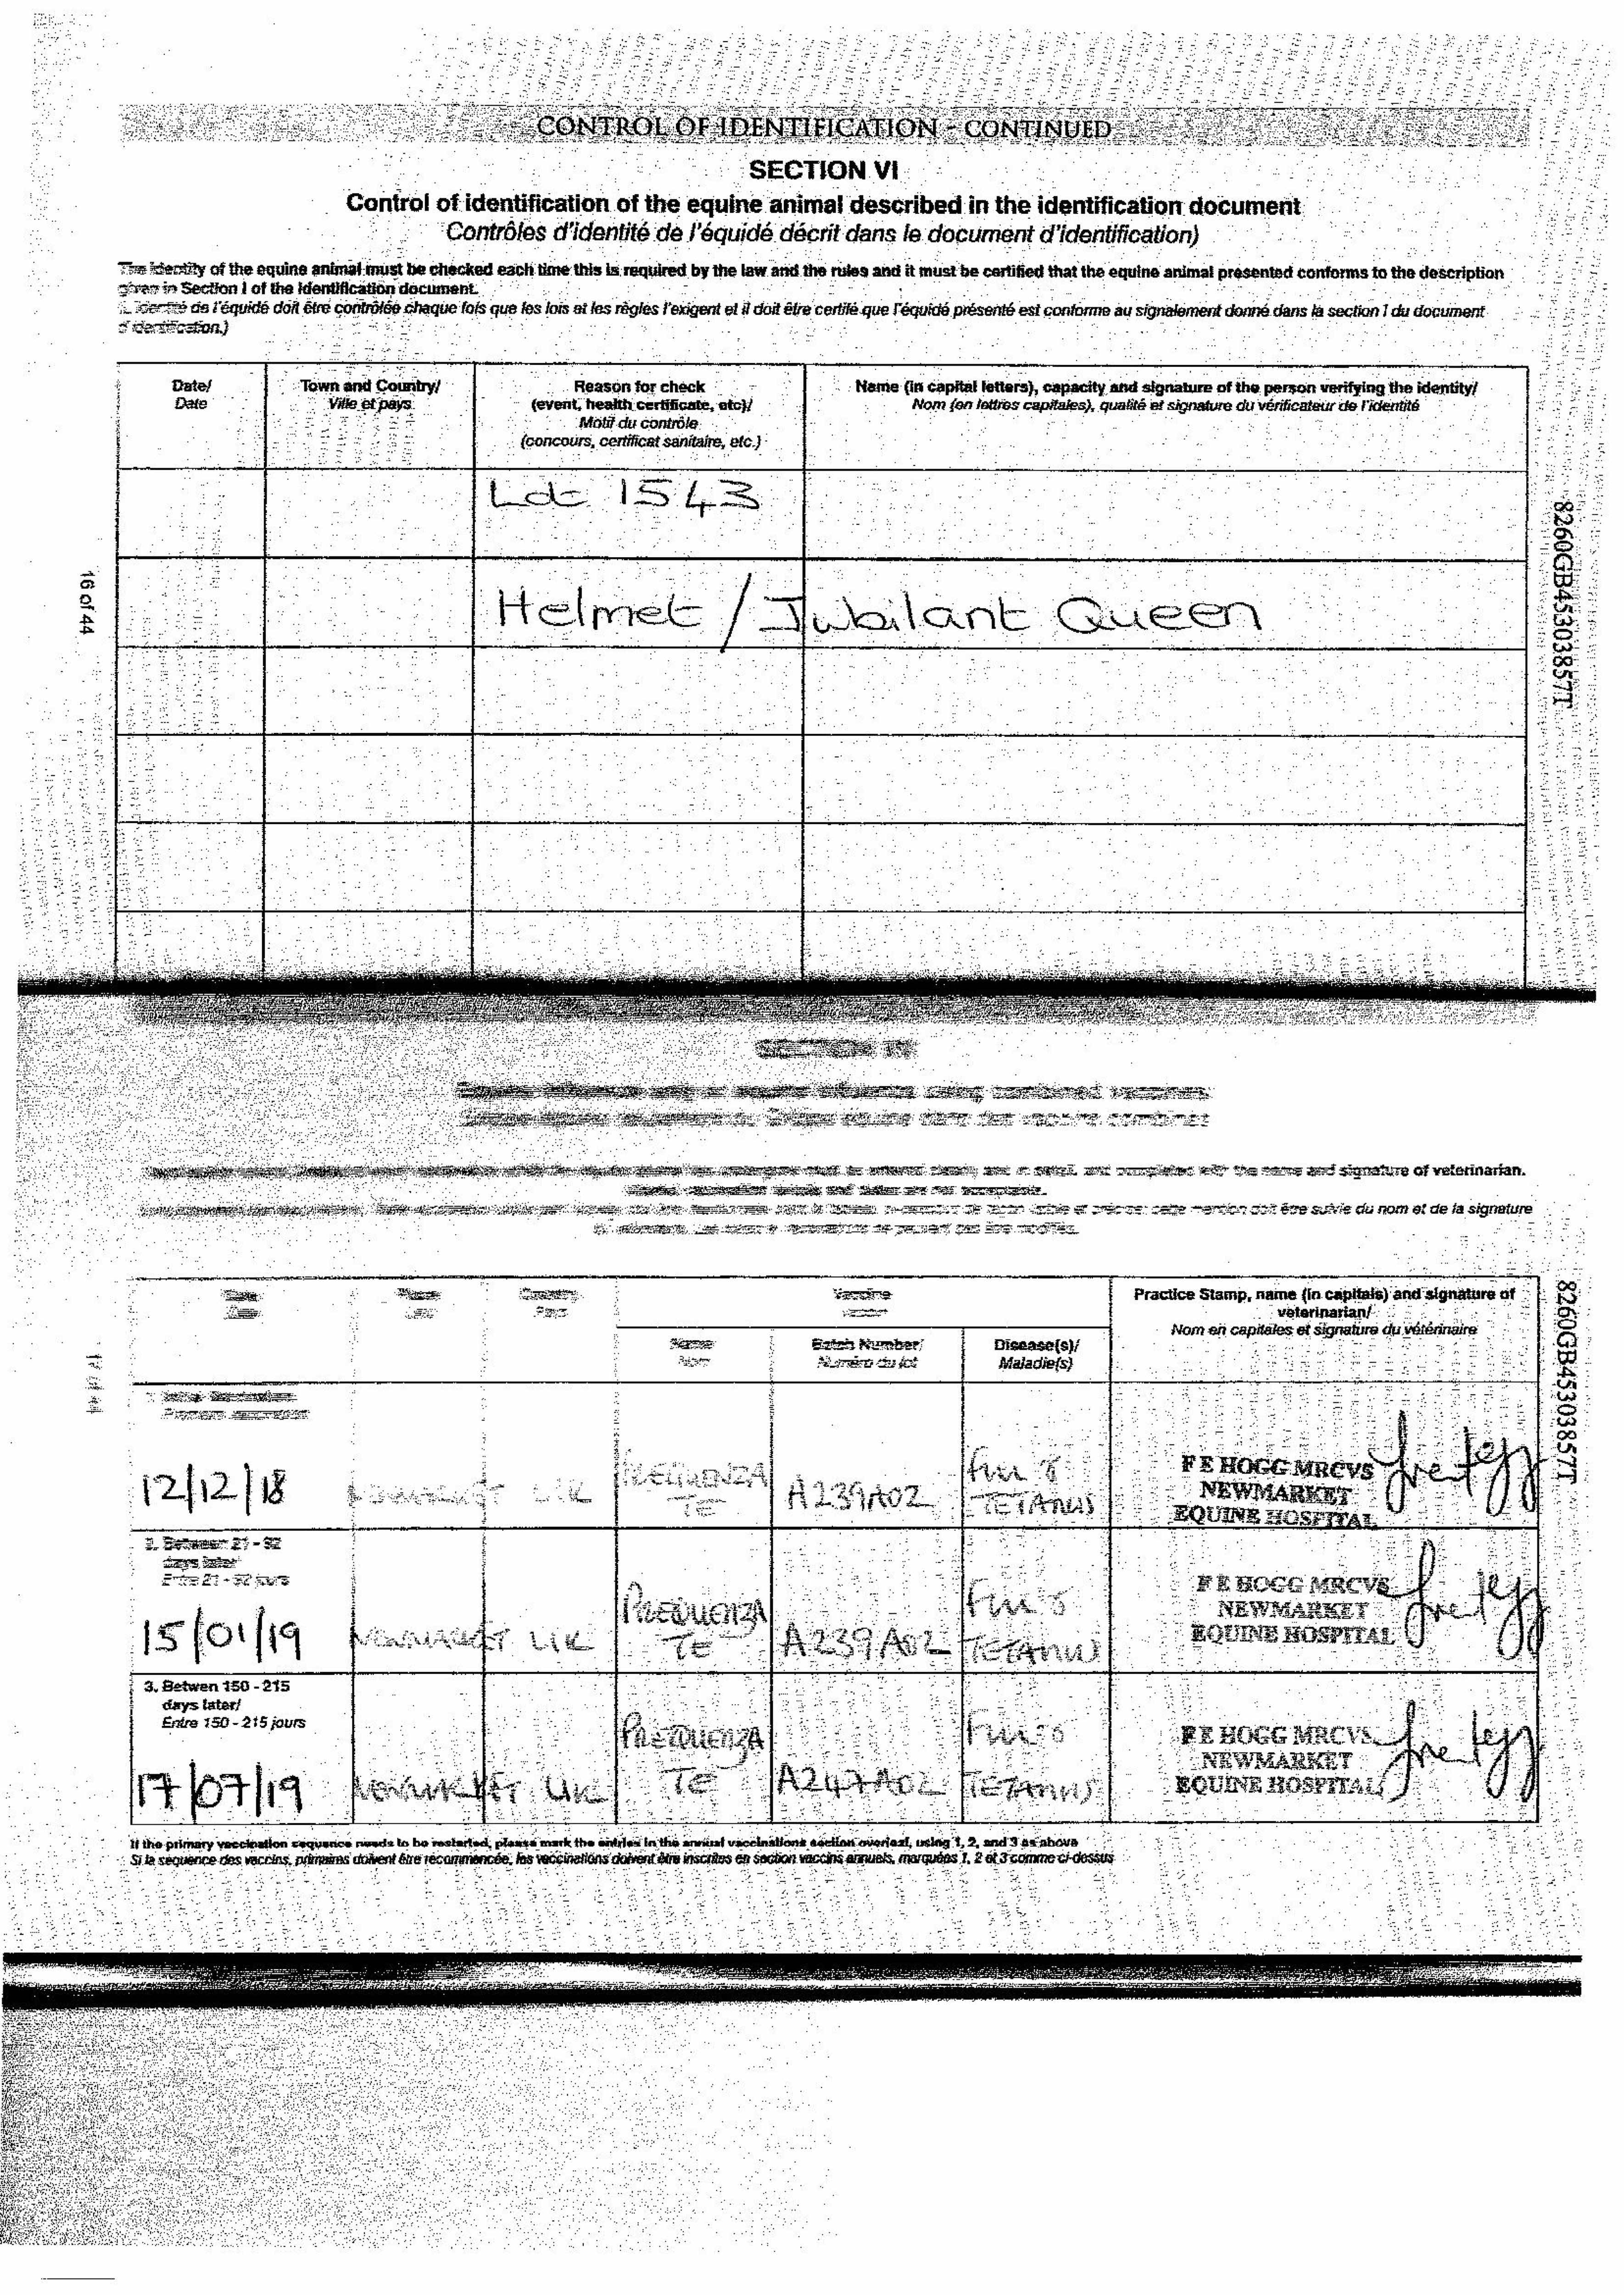 CONTROL OF IDENTIFICATION - CONTINUED
SECTION VI
Control of identification of the equine animal described in the identification document
Contrôles d'identité de l'équidé décrit dans le document d'identification)
The identity of the equine animal must be checked each time this is required by the law and the rules and it must be certified that the equine animal presented conforms to the description
given in Section I of the Identification document.
L'identité de l'équidé doit être contrôlée chaque fois que les lois et les règles l'exigent et il doit être certifié que l'équidé présenté est conforme au signalement donné dans la section I du document
d'identification.)
Date/ Town and Country/ Reason for check Name (in capital letters), capacity and signature of the person verifying the identity/
Date Ville et pays (event, health certificate, etc)/ Nom (en lettres capitales), qualité et signature du vérificateur de l'identité
Motif du contrôle
(concours, certificat sanitaire, etc.)
Lot 1543
Helmet / Jubilant Queen
16 of 44
8260GB45303857T
SECTION IV
and signature of veterinarian.
être suivie du nom et de la signature
Date Place Country Vaccine Practice Stamp, name (in capitals) and signature of
veterinarian/
Nom en capitales et signature du vétérinaire
Name Batch Number/ Disease(s)/
Nom Numéro du lot Maladie(s)
8260GB45303857T
12/12/18 NEWMARKET UK PREQUENZA TE A239A02 FLU & TETANUS
F E HOGG MRCVS
NEWMARKET
EQUINE HOSPITAL
2. Between 21 - 92
days later/
Entre 21 - 92 jours
15/01/19 NEWMARKET UK PREQUENZA TE A239A02 FLU & TETANUS
F E HOGG MRCVS
NEWMARKET
EQUINE HOSPITAL
3. Betwen 150 - 215
days later/
Entre 150 - 215 jours
17/07/19 NEWMARKET UK PREQUENZA TE A247A02 FLU & TETANUS
F E HOGG MRCVS
NEWMARKET
EQUINE HOSPITAL
If the primary vaccination sequence needs to be restarted, please mark the entries in the annual vaccinations section overleaf, using 1, 2, and 3 as above
Si la séquence des vaccins, primaires doivent être recommencée, les vaccinations doivent être inscrites en section vaccins annuels, marquées 1, 2 et 3 comme ci-dessus